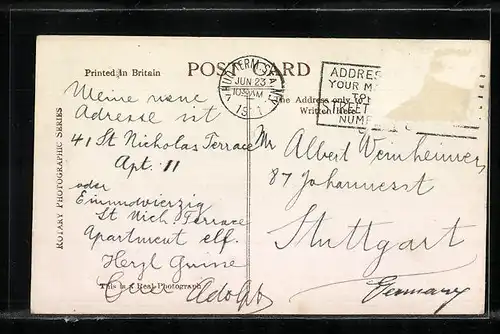 Printed in Britain
POST CARD
HUD. TERM. STA. N.Y.
JUN 23
AM
ADDRESS
YOUR M
TO
STREET
NUMB
The Address only to
Written Here
ROTARY PHOTOGRAPHIC SERIES
Meine neue
Adresse ist
41 St Nicholas Terrace
Apt. 11
oder
Einundvierzig
St Nich. Terrace
Apartment elf.
Herzl Grüsse
This is a Real Photograph
Euer Adolph
Mr Albert Weinheimer
87 Johannesst
Stuttgart
Germany